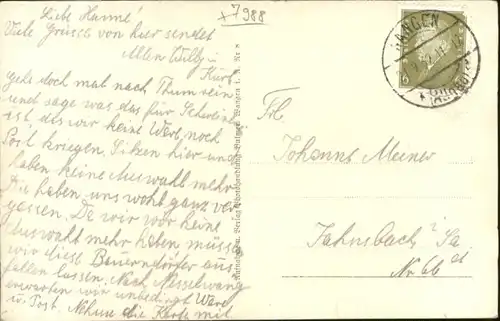 +7988
Liebe Hanne!
Viele Grüsse von hier sendet
Allen Willy u
Kurt
Gehe doch mal nach Thum rein
und sage was das für Schweine
ist das wir keine Ware noch
Post kriegen. Sitzen hier und
haben keine Auswahl mehr
Die haben uns wohl ganz ver
gessen. Da wir vor keine
Auswahl mehr haben müssen
wir diese Bauerndörfer aus
fallen lassen. Nach Nesselwang
erwarten wir unbedingt Ware
u. Post. Nehme die Karte mit
WANGEN
(ALLGÄU)
6
Frl.
Johanne Meener
Jahnsbach i Sa.
Nr 66 d